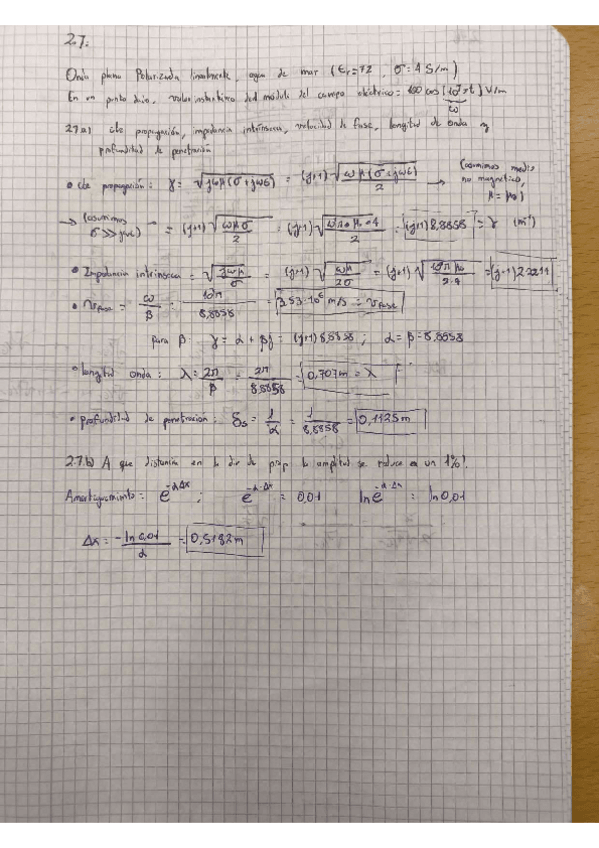 2.7.
Onda plana Polarizada linealmente, agua de mar (εr=72, σ=4 S/m)
En un punto dado, valor instantáneo del módulo del campo eléctrico = 100 cos(10⁷πt) V/m
ω
2.7.a) cte propagación, impedancia intrínseca, velocidad de fase, longitud de onda y
profundidad de penetración
• cte propagación: γ = √(jωμ(σ+jωε)) = (j+1)√(ωμ(σ+jωε)/2) → (asumimos medio no magnético, μ=μ0)
→ (asumimos σ>>jωε) → = (j+1)√(ωμσ/2) = (j+1)√(10⁷π·μ0·4/2) = (j+1)8,8858 = γ (m⁻¹)
• Impedancia intrínseca = √(jωμ/σ) = (j+1)√(ωμ/2σ) = (j+1)√(10⁷π μ0/2·4) = (j+1)2.2214
• vfase = ω/β = 10⁷π/8,8858 = 3,53·10⁶ m/s = vfase
para β γ = α + βj = (j+1)8,8858 ; α = β = 8,8858
• longitud onda: λ = 2π/β = 2π/8,8858 = 0,707m = λ
• profundidad de penetración: δs = 1/α = 1/8,8858 = 0,1125m
2.7.b) A que distancia en la dir de prop. la amplitud se reduce a un 1%?
Amortiguamiento: e^(-αΔx) ; e^(-α·Δx) = 0,01 ln e^(-α·Δx) = ln 0,01
Δx = -ln 0,01/α = 0,5182m